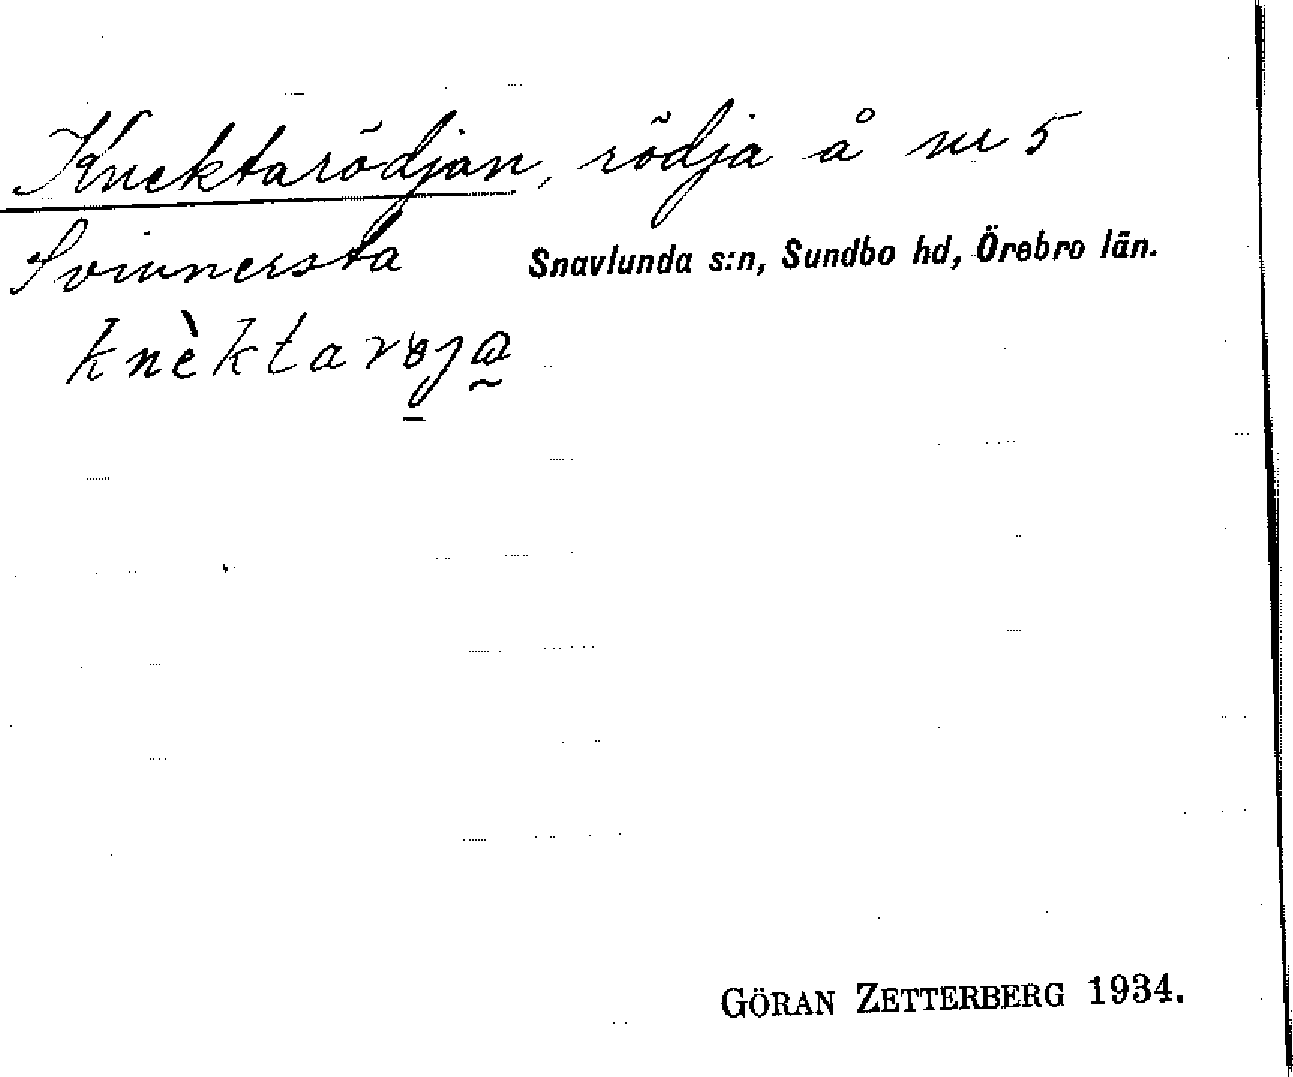 Knektarödjan, rödja å nr 5
Svinnersta Snavlunda s:n, Sundbo hd, Örebro län.
knèktarøja
GÖRAN ZETTERBERG 1934.